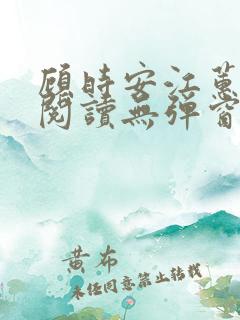 顾时安江蕙
閱讀無彈窗
黃布
未經同意禁止轉載